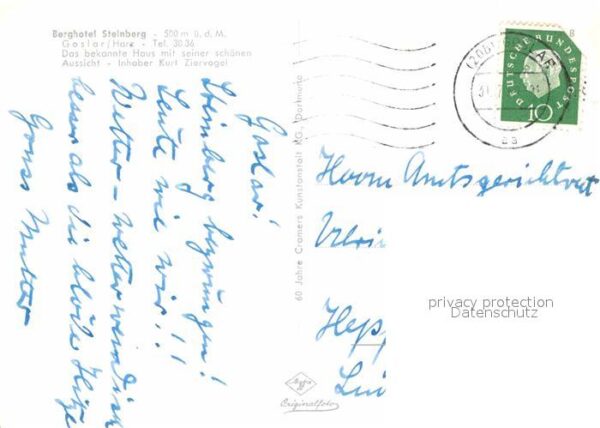 Berghotel Steinberg - 500 m ü.d.M.
Goslar/Harz - Tel. 3036
Das bekannte Haus mit seiner schönen
Aussicht - Inhaber Kurt Ziervogel
Goslar!
Steinberg bezwungen!
Leute wie wir!!!
Wetter -
besser als die blöde Hitze
Gruss Mutter
60 Jahre Cramers Kunstanstalt KG., Dortmund
Agfa
Originalfoto
DEUTSCHE BUNDESPOST
10
(20b)
aa
Herrn Amtsgerichtsrat
Ulri
Hepp
privacy protection
Datenschutz